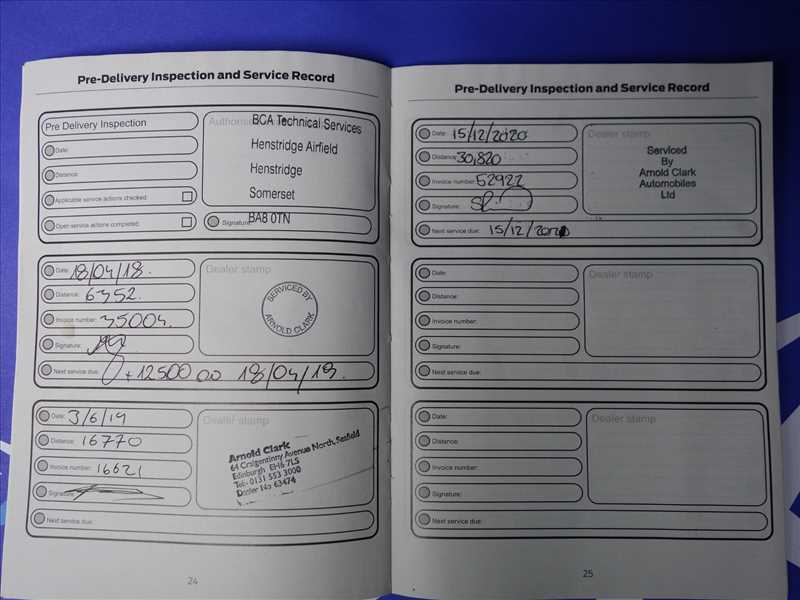 Pre-Delivery Inspection and Service Record
Pre Delivery Inspection
Date:
Distance:
Applicable service actions checked:
Open service actions completed:
Authorise
BCA Technical Services
Henstridge Airfield
Henstridge
Somerset
Signature:
BA8 0TN
Date: 18/04/18.
Distance: 6352.
Invoice number: 35004.
Signature:
Next service due: + 12500 00 18/04/19.
Dealer stamp
SERVICED BY
ARNOLD CLARK
Date: 3/6/19
Distance: 16770
Invoice number: 16621
Signature:
Next service due:
Dealer stamp
Arnold Clark
64 Craigentinny Avenue North, Seafield
Edinburgh EH6 7LS
Tel: 0131 553 3000
Dealer No 63474
24
Pre-Delivery Inspection and Service Record
Date: 15/12/2020
Distance: 30,820
Invoice number: 52922
Signature:
Next service due: 15/12/2021
Dealer stamp
Serviced
By
Arnold Clark
Automobiles
Ltd
Date:
Distance:
Invoice number:
Signature:
Next service due:
Dealer stamp
Date:
Distance:
Invoice number:
Signature:
Next service due:
Dealer stamp
25